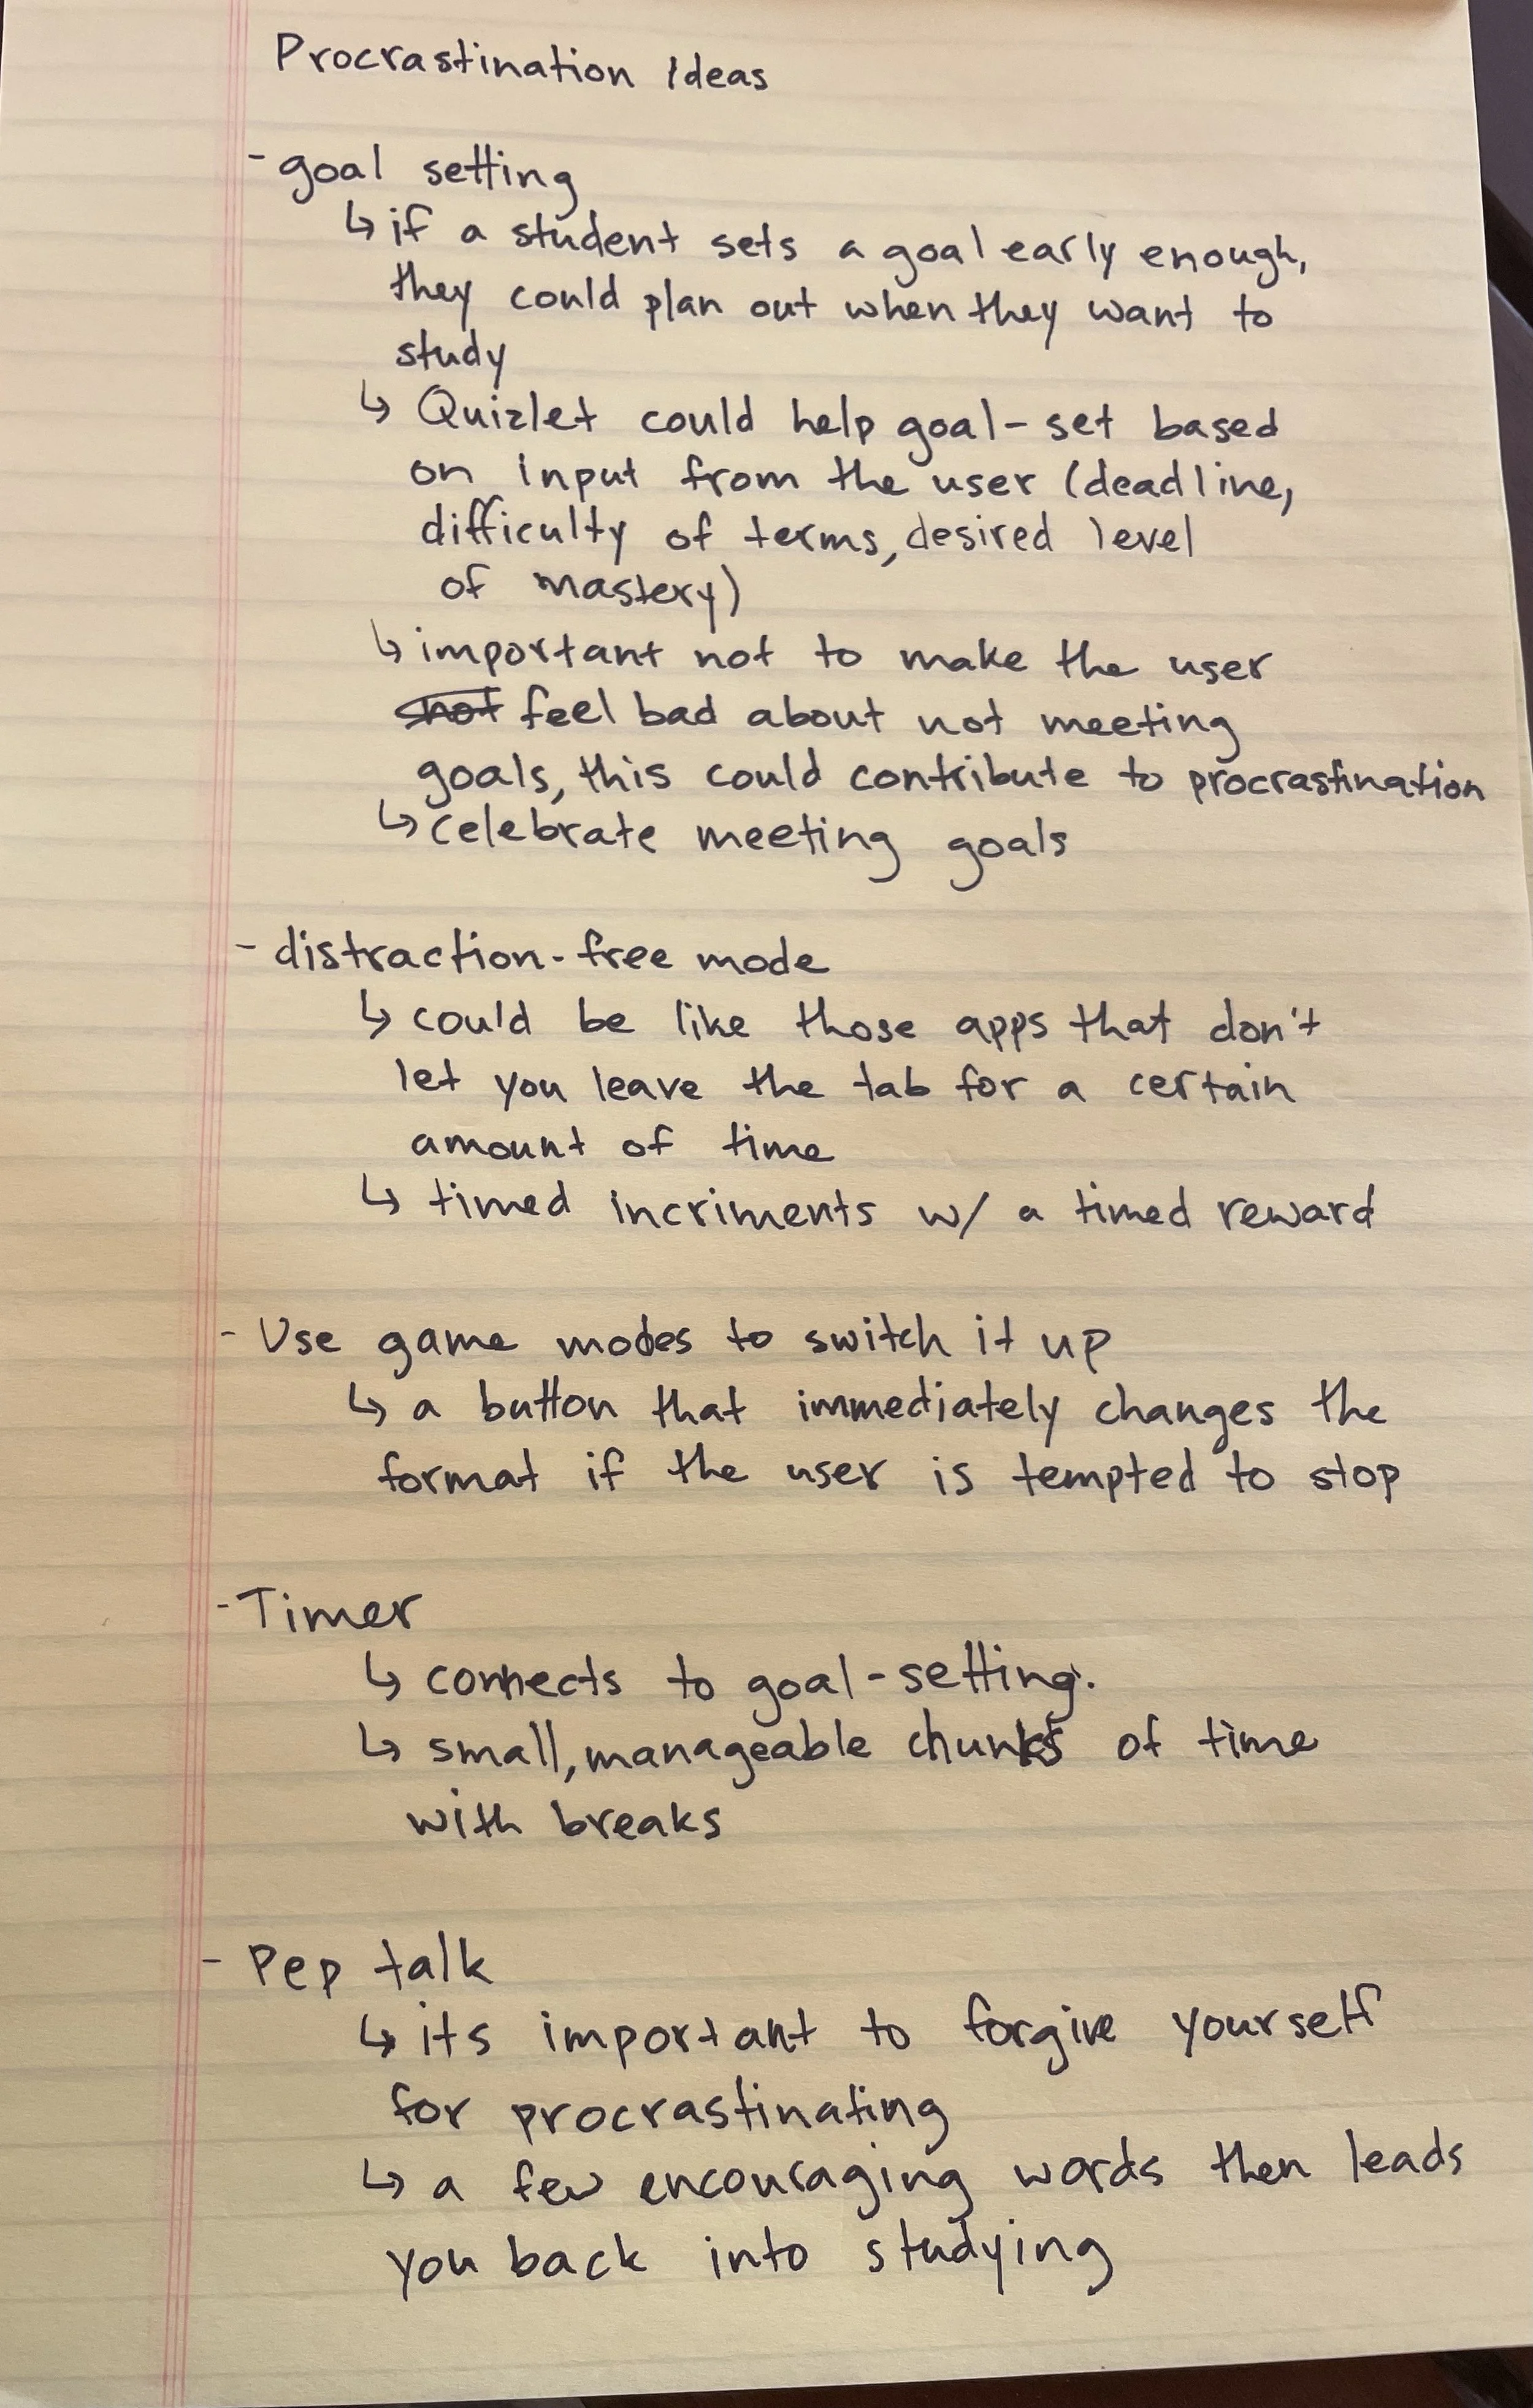 Procrastination Ideas
- goal setting
↳ if a student sets a goal early enough,
they could plan out when they want to
study
↳ Quizlet could help goal-set based
on input from the user (deadline,
difficulty of terms, desired level
of mastery)
↳ important not to make the user
not feel bad about not meeting
goals, this could contribute to procrastination
↳ celebrate meeting goals
- distraction-free mode
↳ could be like those apps that don't
let you leave the tab for a certain
amount of time
↳ timed incriments w/ a timed reward
- Use game modes to switch it up
↳ a button that immediately changes the
format if the user is tempted to stop
- Timer
↳ connects to goal-setting.
↳ small, manageable chunks of time
with breaks
- Pep talk
↳ its important to forgive yourself
for procrastinating
↳ a few encouraging words then leads
you back into studying